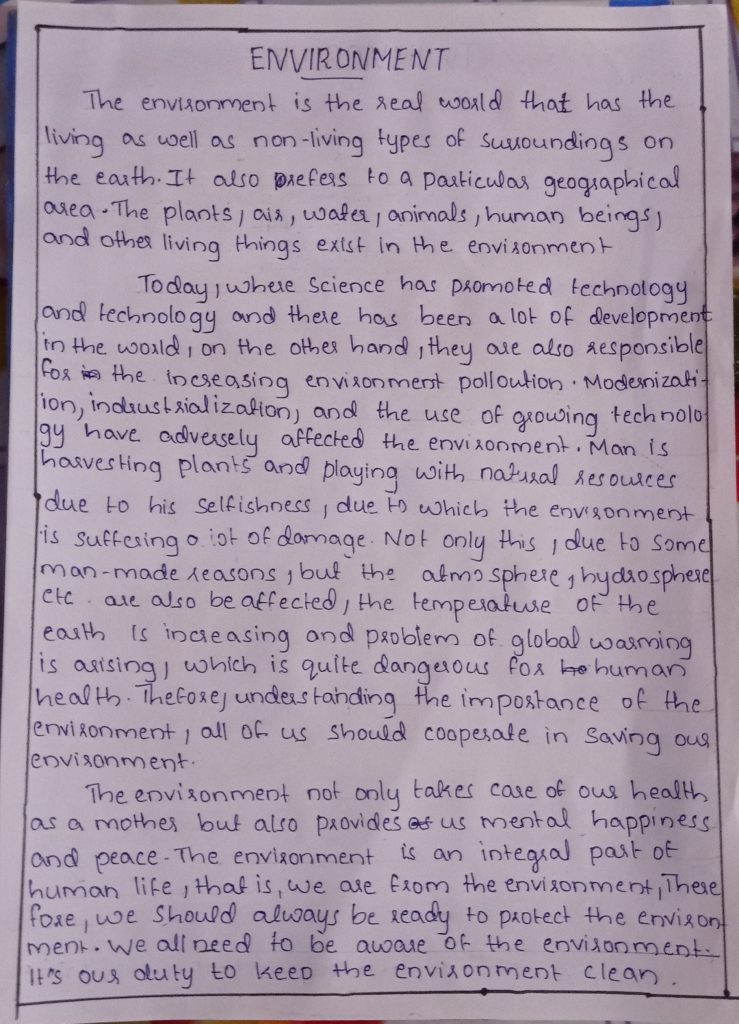 ENVIRONMENT
The environment is the real world that has the
living as well as non-living types of surroundings on
the earth. It also refers to a particular geographical
area. The plants, air, water, animals, human beings,
and other living things exist in the environment
Today, where Science has promoted technology
and technology and there has been a lot of development
in the world, on the other hand, they are also responsible
for the increasing environment polloution. Modernizati-
ion, indrustrialization, and the use of growing technolo
gy have adversely affected the environment. Man is
harvesting plants and playing with natural resources
due to his selfishness, due to which the environment
is suffering a lot of damage. Not only this, due to some
man-made reasons, but the atmosphere, hydrosphere
etc. are also be affected, the temperature of the
earth is increasing and problem of global warming
is arising, which is quite dangerous for human
health. Thefore, understanding the importance of the
environment, all of us should cooperate in saving our
environment.
The environment not only takes care of our health
as a mother but also provides us mental happiness
and peace. The environment is an integral part of
human life, that is, we are from the environment, There
fore, we should always be ready to protect the environ
ment. We all need to be aware of the environment.
It's our duty to keep the environment clean.